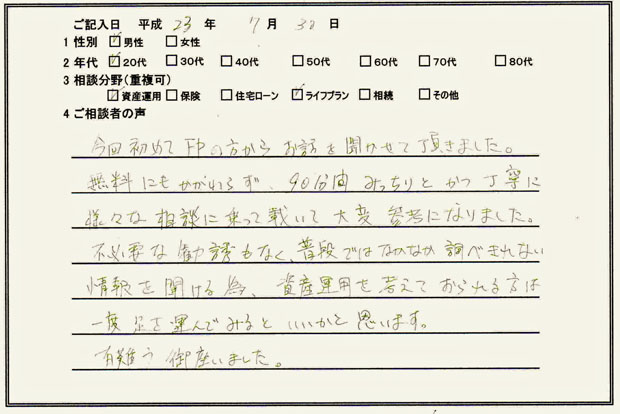 ご記入日 平成 23 年 7 月 30 日
1 性別 ☑男性 □女性
2 年代 ☑20代 □30代 □40代 □50代 □60代 □70代 □80代
3 相談分野(重複可)
☑資産運用 □保険 □住宅ローン ☑ライフプラン □相続 □その他
4 ご相談者の声
今回初めてFPの方からお話を聞かせて頂きました。
無料にもかかわらず、90分間みっちりとかつ丁寧に
様々な相談に乗って載いて大変参考になりました。
不必要な勧誘もなく、普段ではなかなか調べきれない
情報を聞ける為、資産運用を考えておられる方は
一度足を運んでみるといいかと思います。
有難う御座いました。